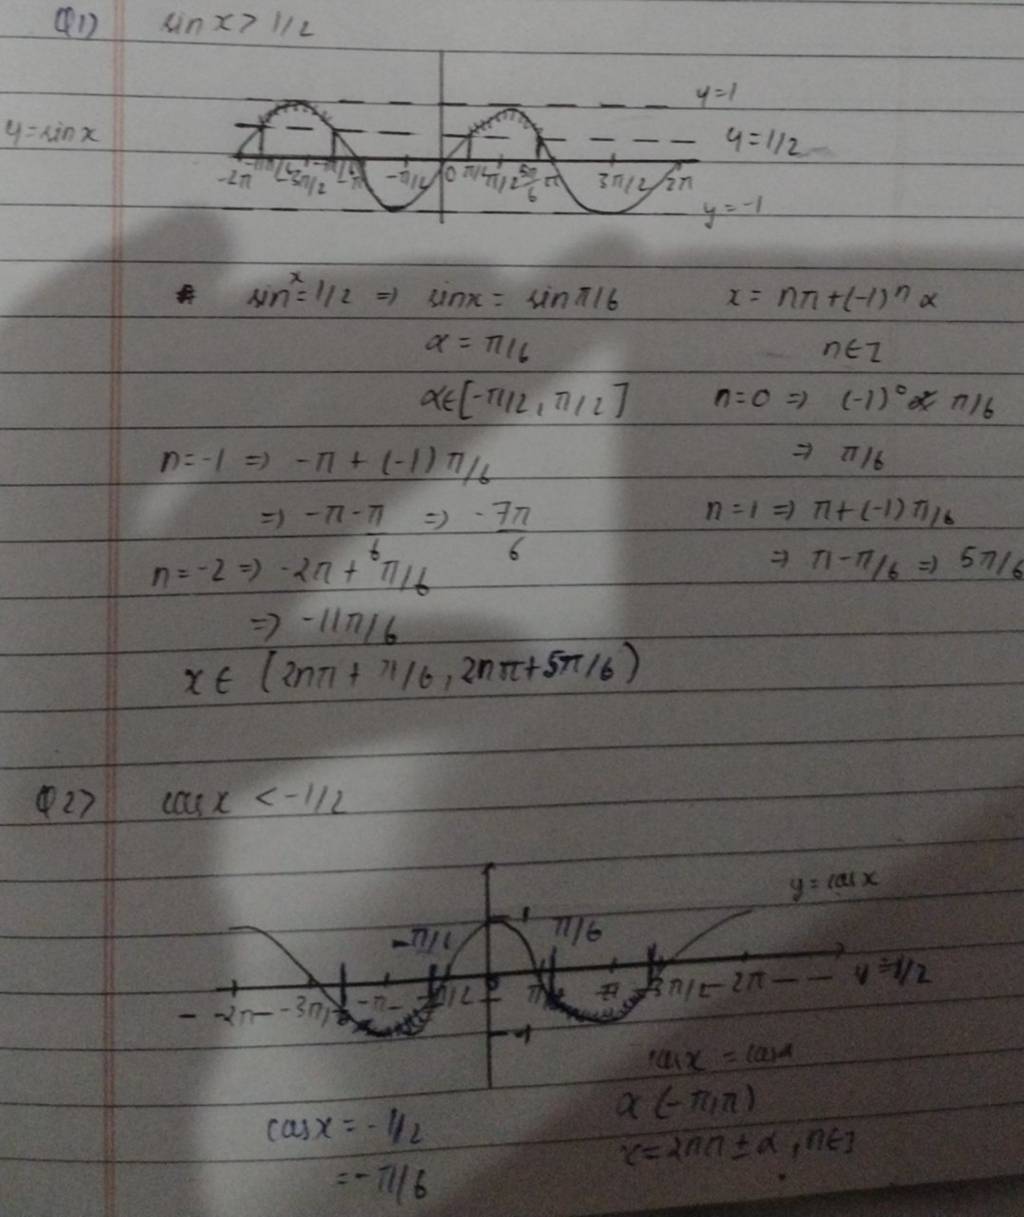 Q1) sin x > 1/2
y=1
y = sin x
y = 1/2
-2π -3π/2 -π/2 0 π/2 5π/6 π 3π/2 2π
y = -1
sin x = 1/2 => sinx = sin π/6 x = nπ + (-1)ⁿ α
α = π/6 n∈Z
α∈[-π/2, π/2] n=0 => (-1)⁰ π/6
n=-1 => -π + (-1) π/6 => π/6
=> -π - π/6 => -7π/6 n=1 => π + (-1) π/6
n=-2 => -2π + π/6 => π - π/6 => 5π/6
=> -11π/6
x ∈ (2nπ + π/6, 2nπ + 5π/6)
Q2) cosx < -1/2
y = cosx
-π/6 1 π/6
-2π -3π/2 -π -π/2 π 3π/2 2π y = -1/2
-1
cosx = cosα
cosx = -1/2 α (-π, π)
= -π/6 x = 2nπ ± α, n∈Z